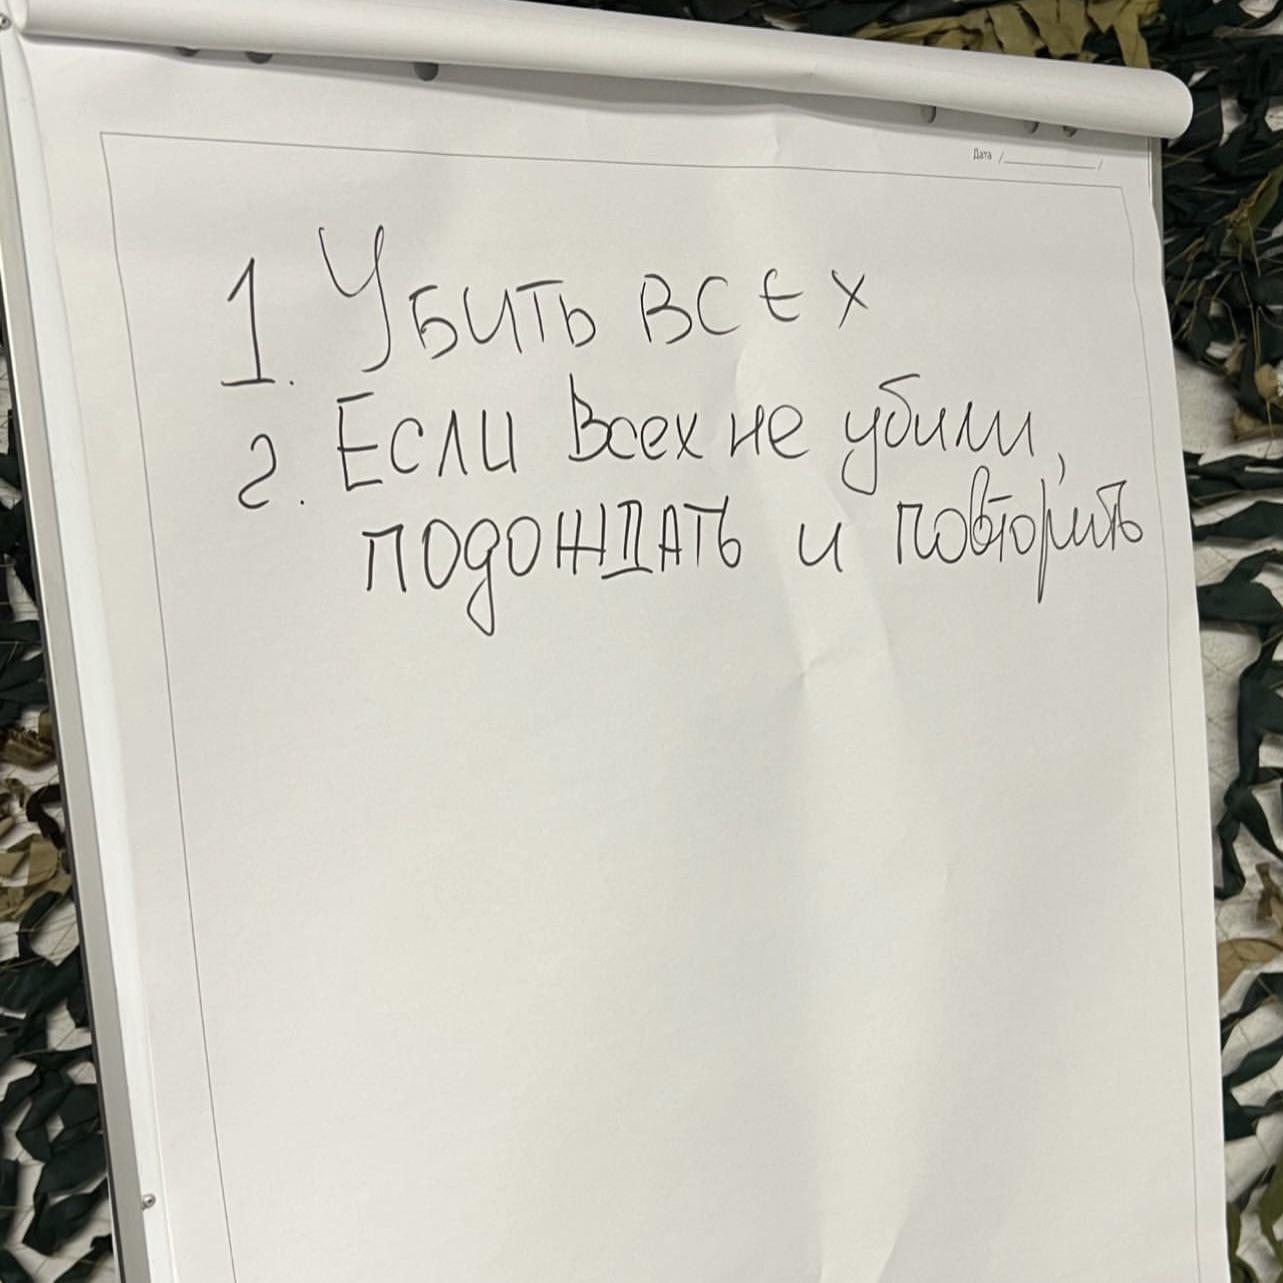 Дата /____________/
1. Убить всех
2. Если всех не убили,
подождать и повторить